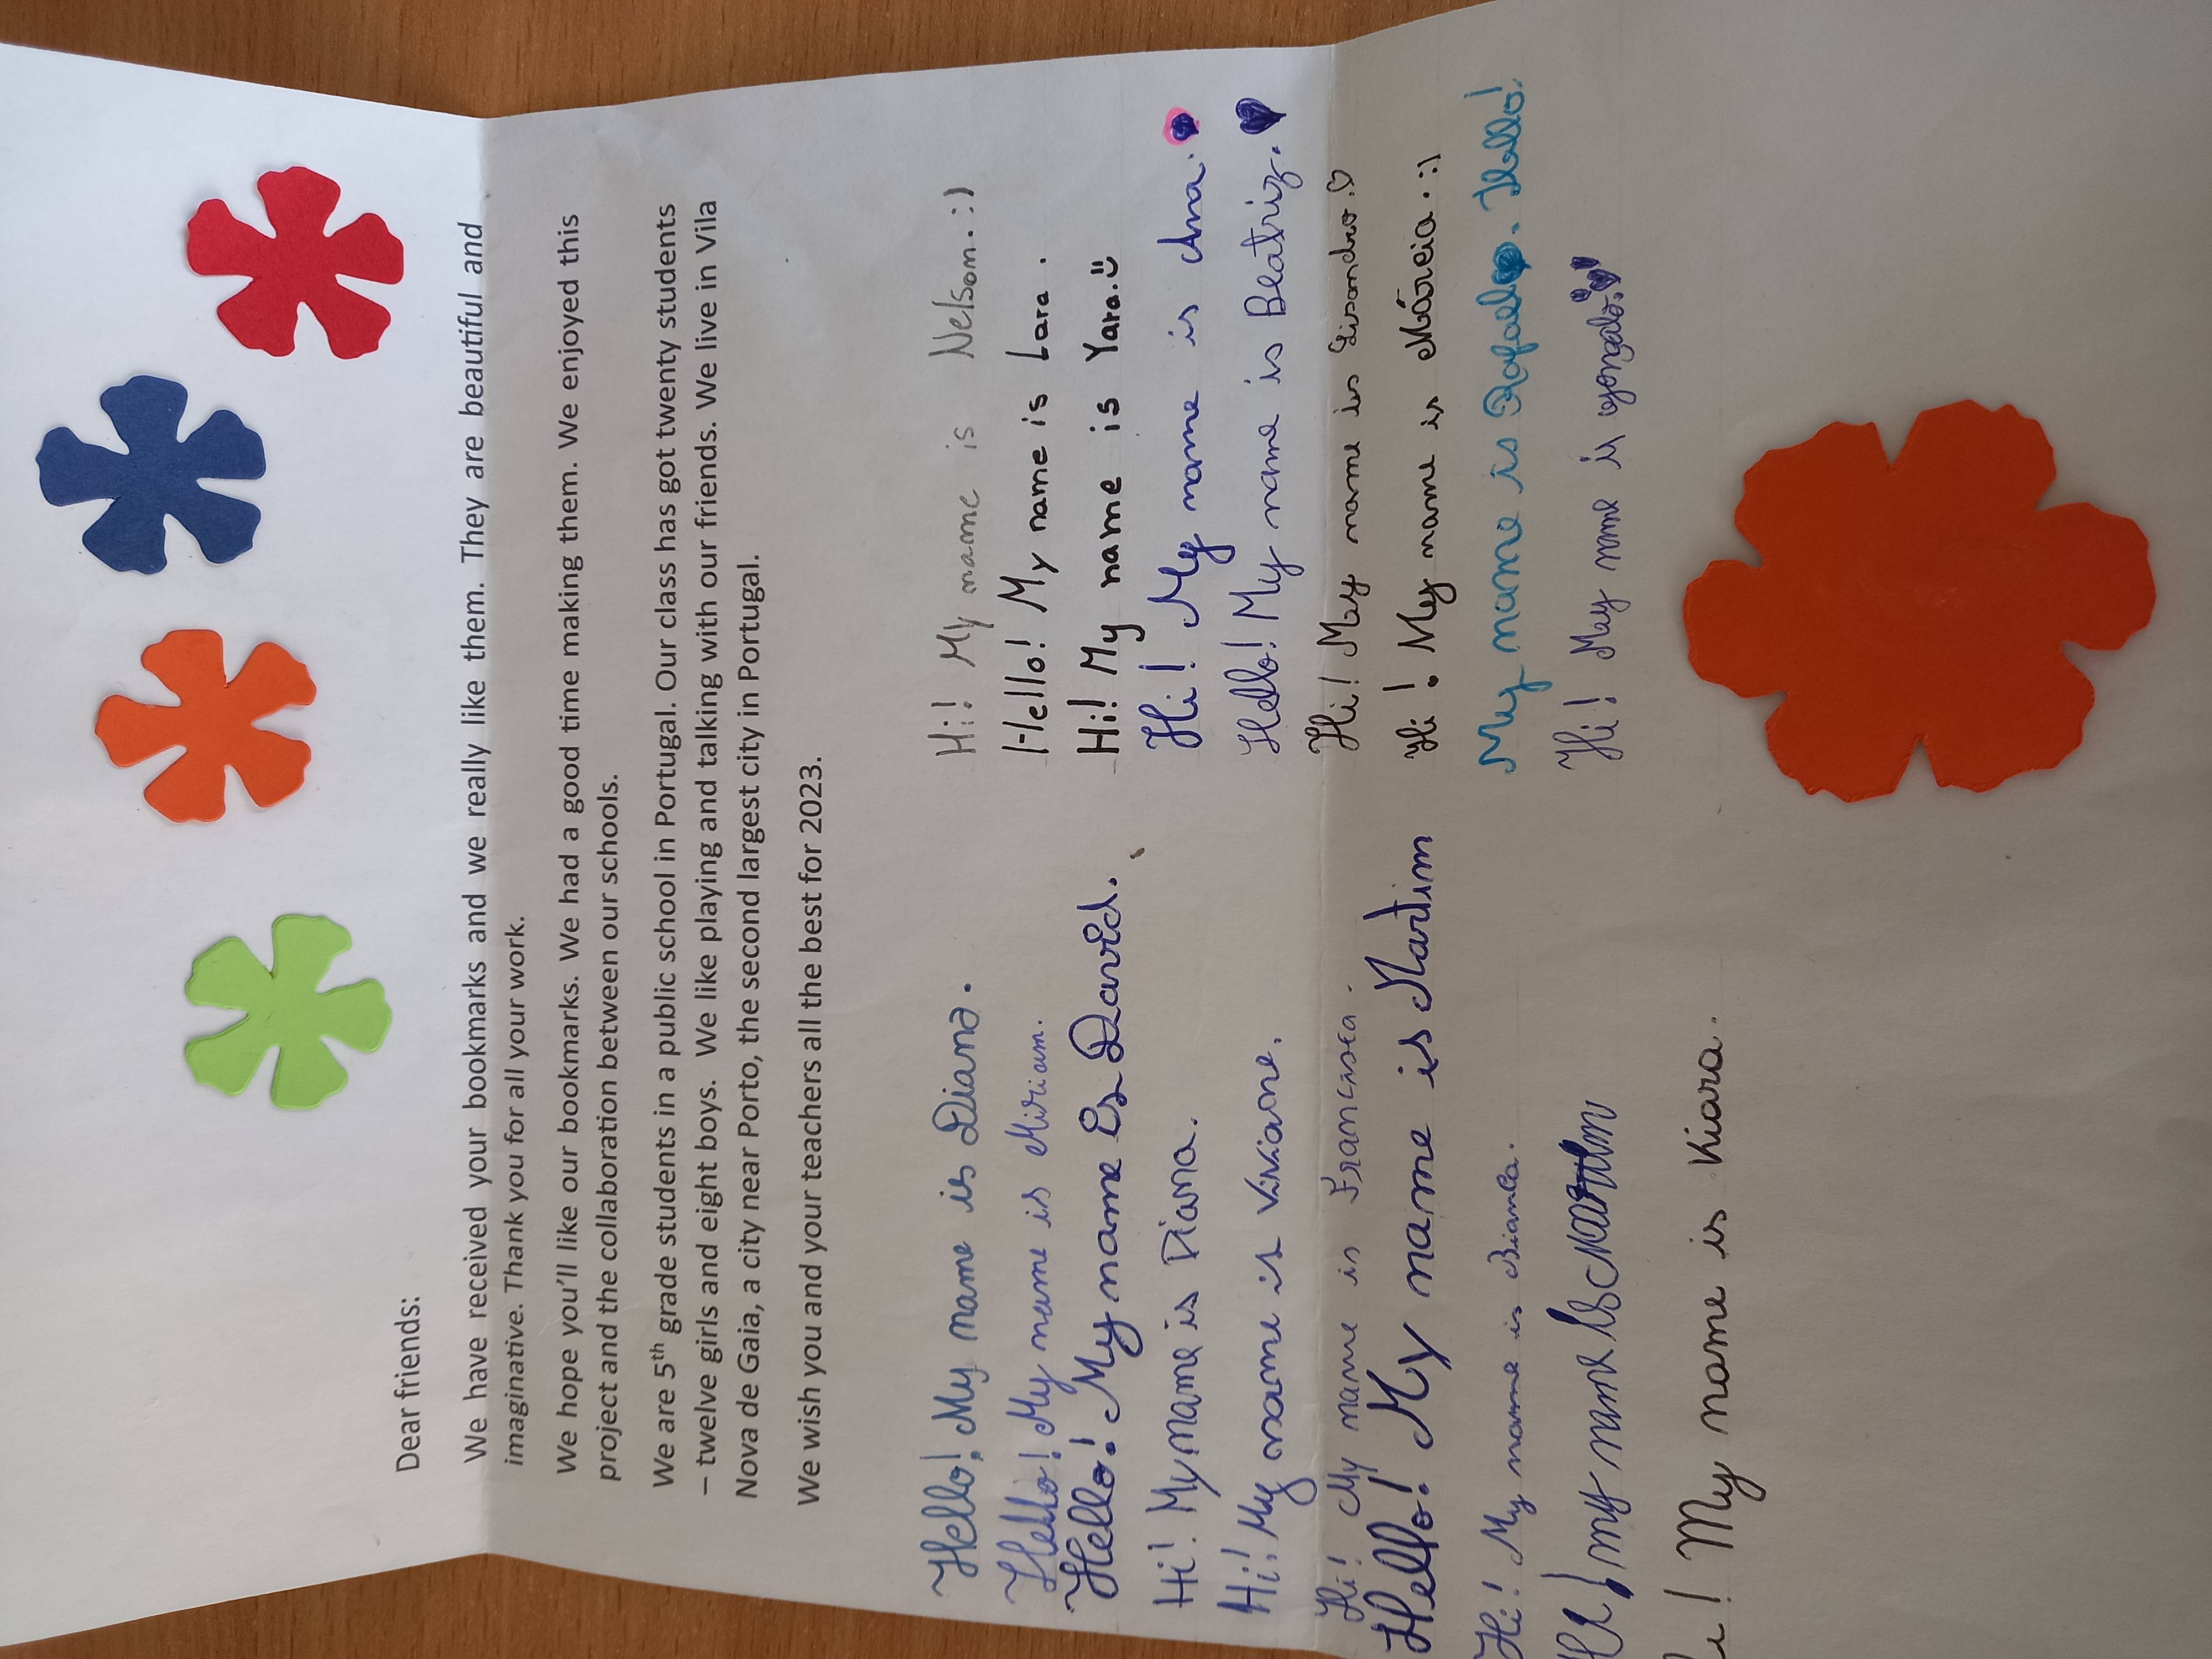 Dear friends:
We have received your bookmarks and we really like them. They are beautiful and
imaginative. Thank you for all your work.
We hope you'll like our bookmarks. We had a good time making them. We enjoyed this
project and the collaboration between our schools.
We are 5th grade students in a public school in Portugal. Our class has got twenty students
– twelve girls and eight boys. We like playing and talking with our friends. We live in Vila
Nova de Gaia, a city near Porto, the second largest city in Portugal.
We wish you and your teachers all the best for 2023.
Hello! My name is Diana.
Hello! My name is Miriam.
Hello! My name Is David.
Hi! My name is Diana.
Hi! My name is Viviane.
Hi! My name is Francisca.
Hello! My name is Martim
Hi! My name is Bianca.
my name Is
! My name is Kiara.
Hi! My name is Nelson. :)
Hello! My name is Lara.
Hi! My name is Yara.
Hi! My name is Ana.
Hello! My name is Beatriz.
Hi! May name is Lisandro.
Hi! My name is Márcia. :)
My name is Rafael. Hello!
Hi! May name is gonçalo.